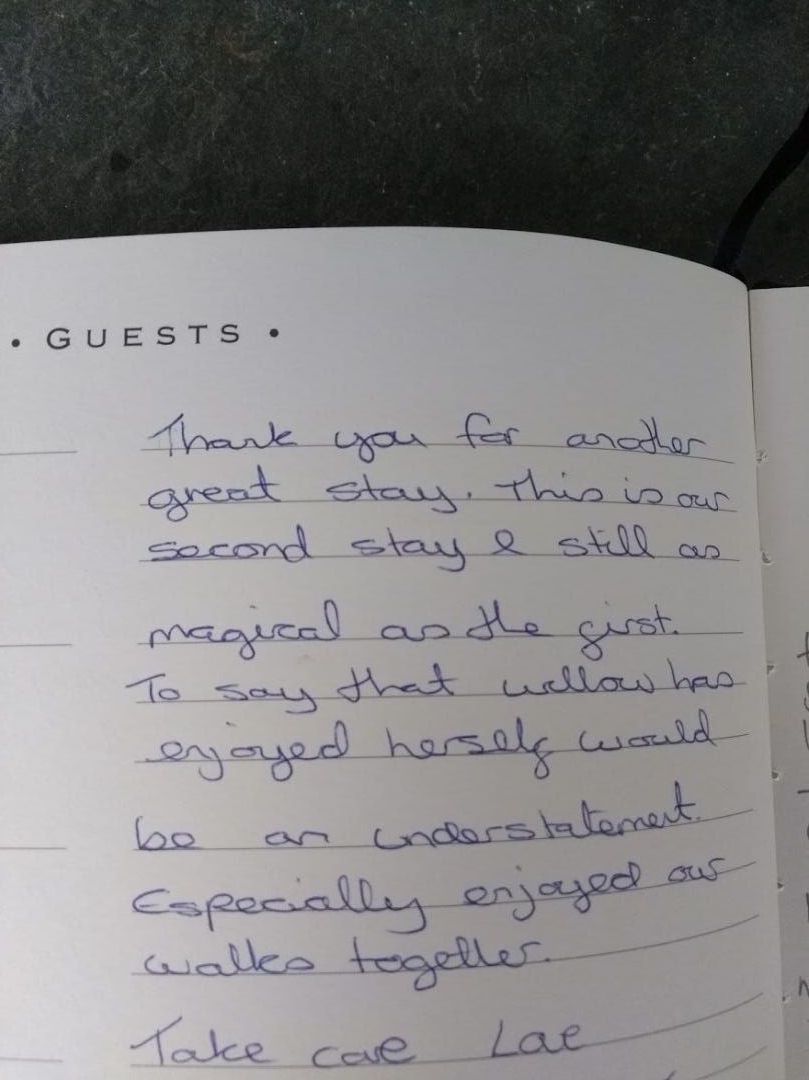 • GUESTS •
Thank you for another
great stay. This is our
second stay & still as
magical as the first.
To say that willow has
enjoyed herself would
be an understatement.
Especially enjoyed our
walks together.
Take care